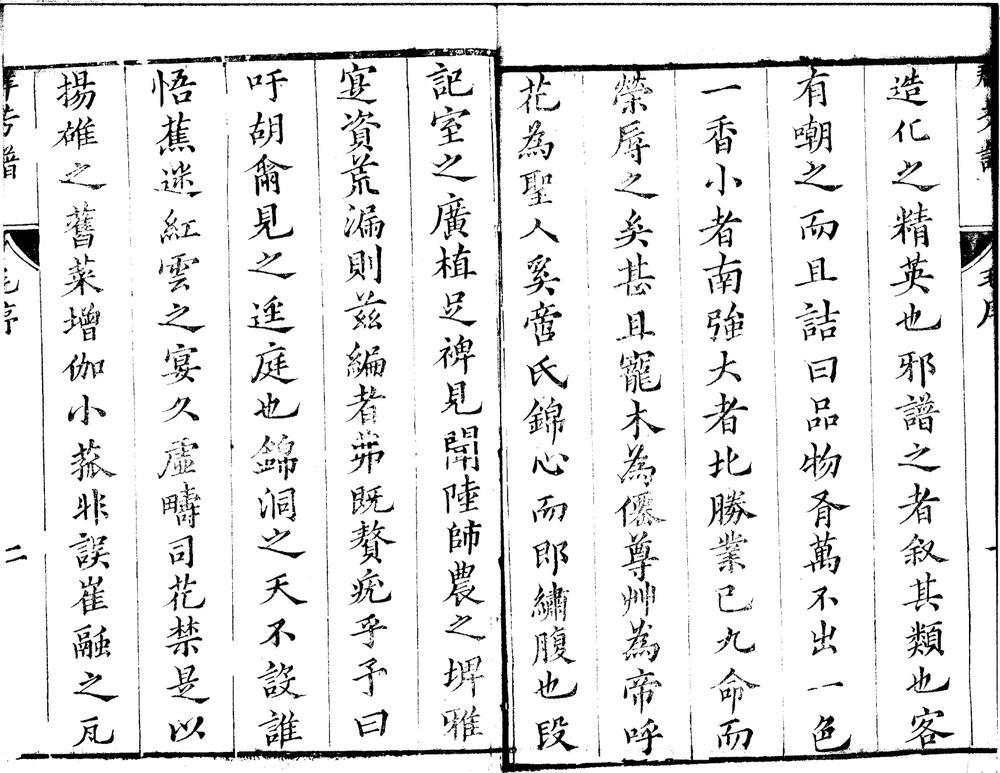 造化之精英也邪譜之者敘其類也客
有嘲之而且詰曰品物胥萬不出一色
一香小者南強大者北勝業已九命而
榮辱之矣甚且寵木為僊尊艸為帝呼
花為聖人奚啻氏錦心而郎繡腹也段
記室之廣植足裨見聞陸師農之埤雅
寔資荒漏則茲編者茀既贅疣乎予曰
吁胡爾見之逕庭也錦洞之天不設誰
悟蕉迷紅雲之宴久虛疇司花禁是以
揚雄之舊菜增伽小菰非誤崔融之瓦
二